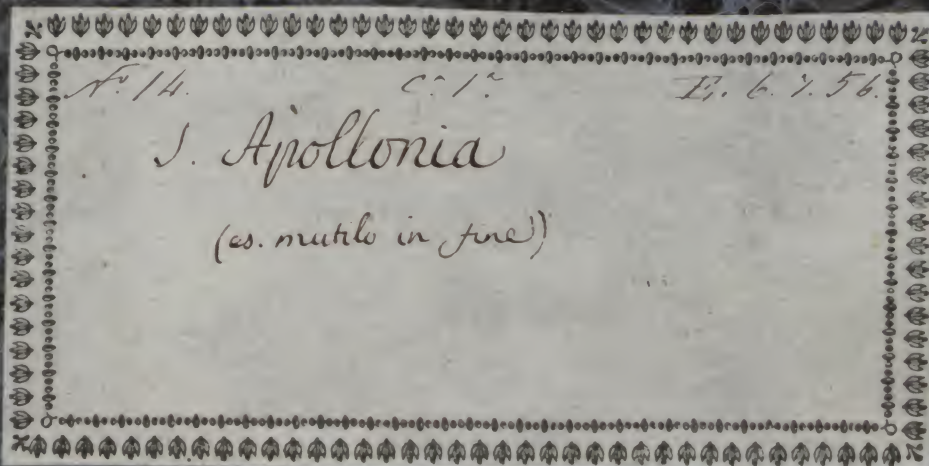 N.º 14. C.ª 1.ª E. 6. 7. 56.
S. Apollonia
(es. mutilo in fine)